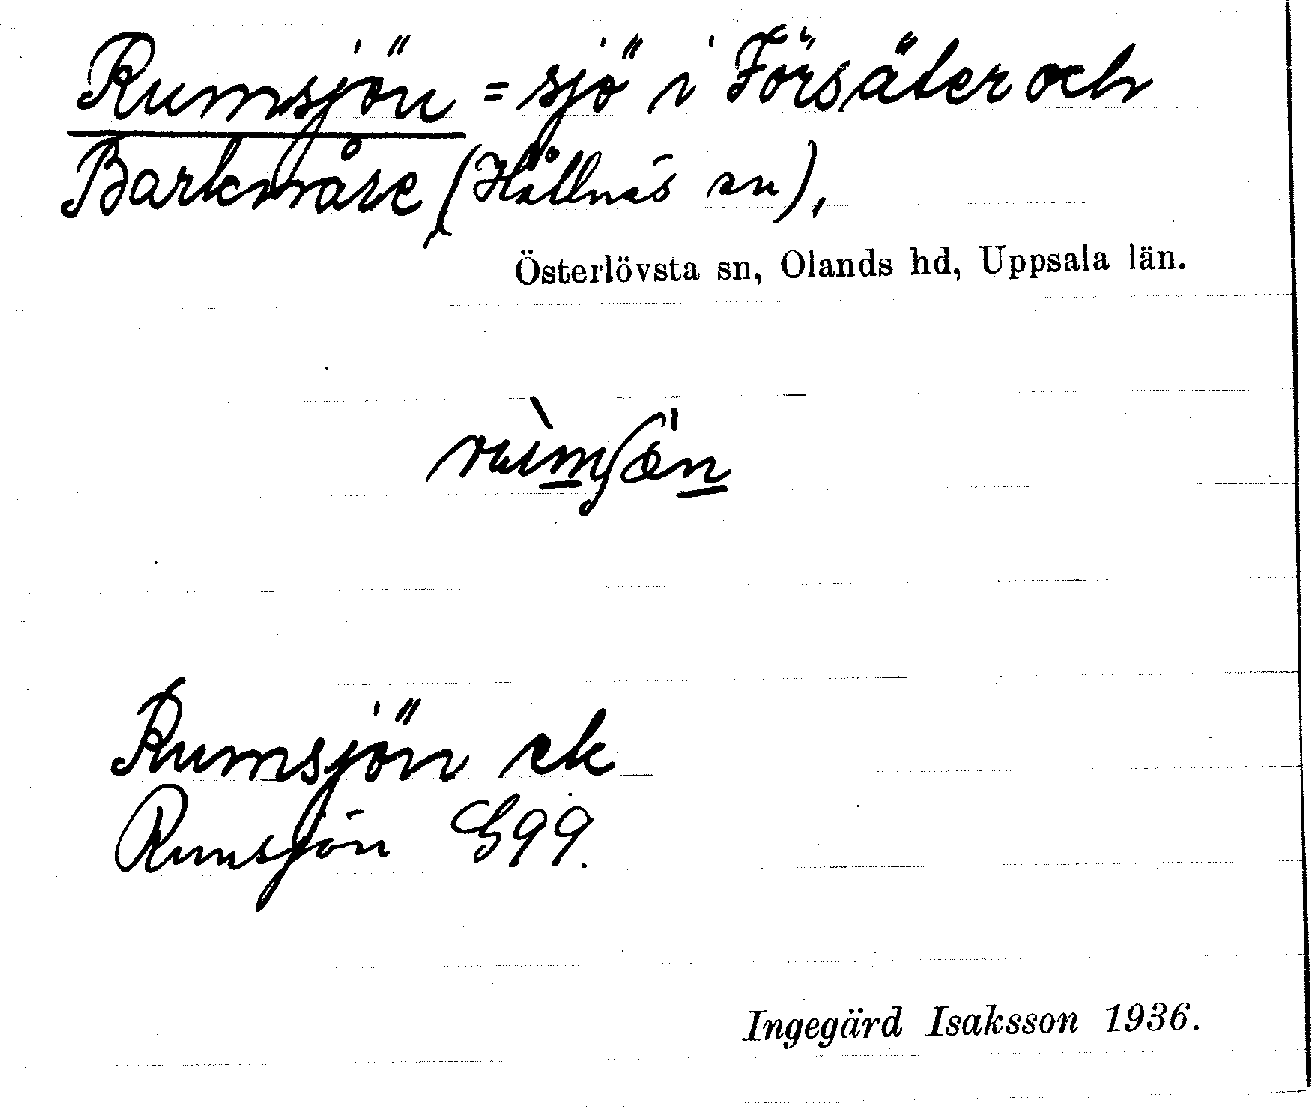 Rumsjön = sjö i Försäter och
Barknåre (Hållnäs sn),
Österlövsta sn, Olands hd, Uppsala län.
Rumsjön ek
Rumsjön G99.
Ingegärd Isaksson 1936.